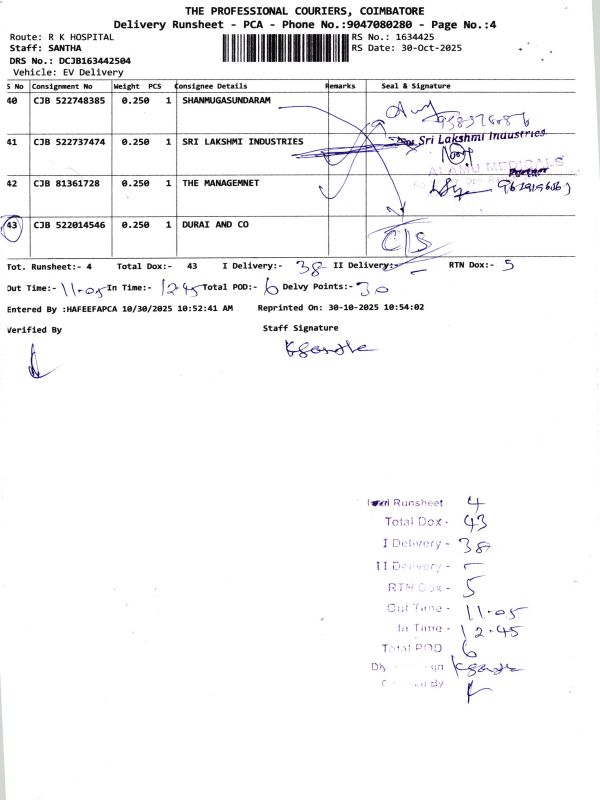 THE PROFESSIONAL COURIERS, COIMBATORE
Delivery Runsheet - PCA - Phone No.:9047080280 - Page No.:4
Route: R K HOSPITAL
RS No.: 1634425
Staff: SANTHA
RS Date: 30-Oct-2025
DRS No.: DCJB163442504
Vehicle: EV Delivery
S No Consignment No Weight PCS Consignee Details Remarks Seal & Signature
40 CJB 522748385 0.250 1 SHANMUGASUNDARAM
41 CJB 522737474 0.250 1 SRI LAKSHMI INDUSTRIES
Sri Lakshmi Industries
Partner
ALAMU MEDICALS
42 CJB 81361728 0.250 1 THE MANAGEMNET
43 CJB 522014546 0.250 1 DURAI AND CO
C/S
Tot. Runsheet:- 4 Total Dox:- 43 I Delivery:- 38 II Delivery:- - RTN Dox:- 5
Out Time:- 11-05 In Time:- 12-45 Total POD:- 6 Delvy Points:- 30
Entered By :HAFEEFAPCA 10/30/2025 10:52:41 AM Reprinted On: 30-10-2025 10:54:02
Verified By Staff Signature
Runsheet 4
Total Dox - 43
I Delivery - 38
II Delivery - -
RTN Dox - 5
Out Time - 11-05
In Time - 12-45
Total POD 6
By